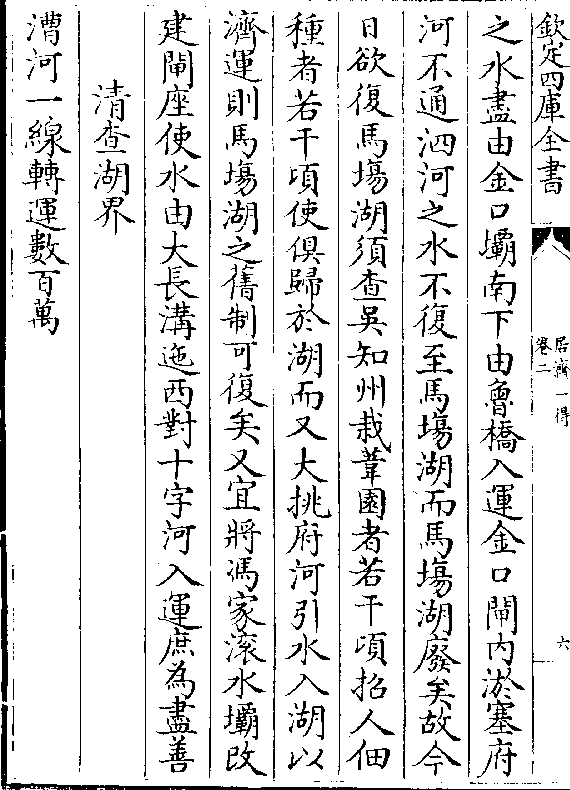 欽定四庫全書
居濟一得
卷二
六
之水盡由金口壩南下由魯橋入運金口閘內淤塞府
河不通泗河之水不復至馬塲湖而馬塲湖廢矣故今
日欲復馬塲湖須查吳知州栽葦園者若干頃招人佃
種者若干頃使俱歸於湖而又大挑府河引水入湖以
濟運則馬塲湖之舊制可復矣又宜將馮家滚水壩改
建閘座使水由大長溝迤西對十字河入運庶為盡善
清查湖界
漕河一線轉運數百萬